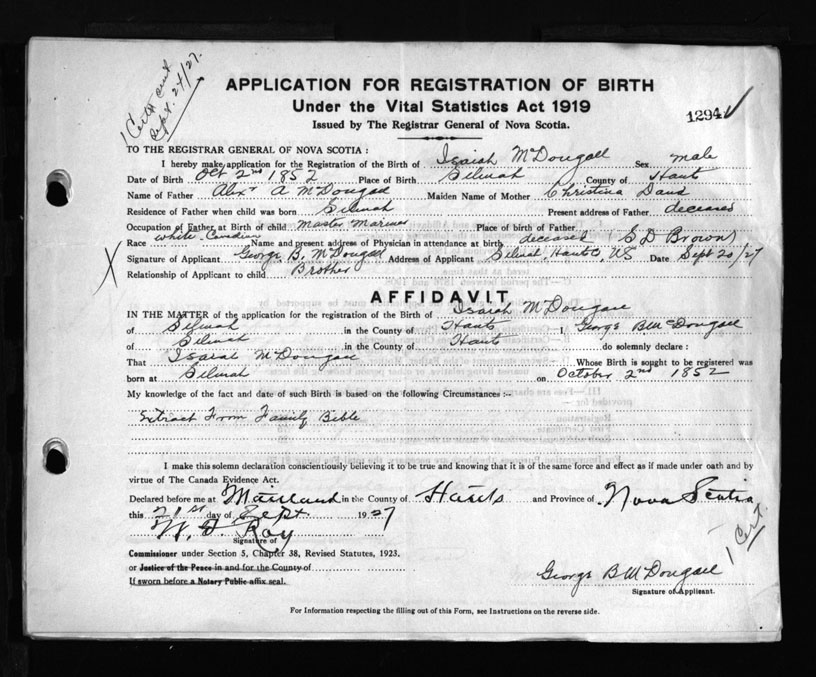 1 Cert sent
Sept. 24/27.
APPLICATION FOR REGISTRATION OF BIRTH
Under the Vital Statistics Act 1919
Issued by The Registrar General of Nova Scotia.
12942
TO THE REGISTRAR GENERAL OF NOVA SCOTIA :
I hereby make application for the Registration of the Birth of Isaiah McDougall Sex male
Date of Birth Oct 2nd 1852 Place of Birth Selmah County of Hants
Name of Father Alexr A McDougall Maiden Name of Mother Christina
Residence of Father when child was born Selmah Present address of Father deceased
Occupation of Father at Birth of child Master Mariner Place of birth of Father
Race white-Canadian Name and present address of Physician in attendance at birth deceased (S D Brown)
Signature of Applicant George B. McDougall Address of Applicant Selmah, Hants, NS Date Sept 20/27
Relationship of Applicant to child Brother
X
AFFIDAVIT
IN THE MATTER of the application for the registration of the Birth of Isaiah McDougall
of Selmah in the County of Hants I, George B McDougall
of Selmah in the County of Hants do solemnly declare :
That Isaiah McDougall Whose Birth is sought to be registered was
born at Selmah on October 2nd 1852
My knowledge of the fact and date of such Birth is based on the following Circumstances :-
Extract From Family Bible
I make this solemn declaration conscientiously believing it to be true and knowing that it is of the same force and effect as if made under oath and by
virtue of The Canada Evidence Act.
Declared before me at Maitland in the County of Hants and Province of Nova Scotia
this 21st day of Sept 1927
W. F. Roy
Signature of
1 Cert.
Commissioner under Section 5, Chapter 38, Revised Statutes, 1923.
or Justice of the Peace in and for the County of
If sworn before a Notary Public affix seal.
George B McDougall
Signature of Applicant.
For Information respecting the filling out of this Form, see Instructions on the reverse side.